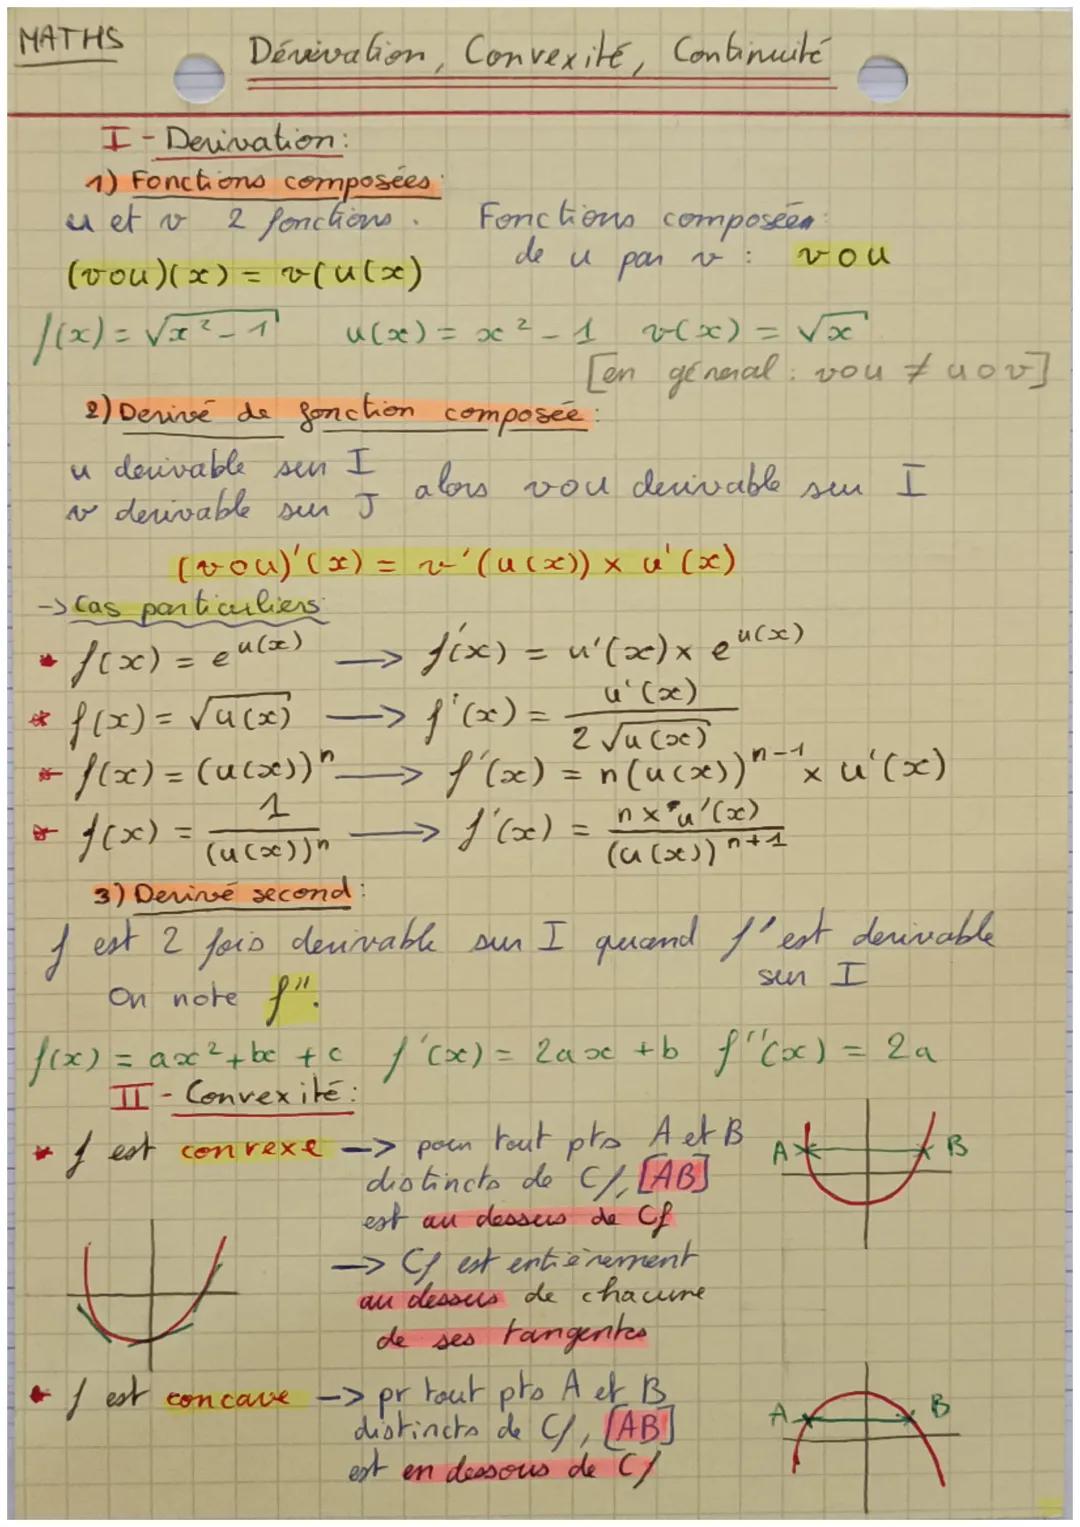 MATHS
Dérivation, Convexité, Continuité
I - Derivation:
1) Fonctions composées:
u et v 2 fonctions. Fonctions composées:
de u par v : vou
(vou)(x) = v(u(x)
f(x) = √x² - 1 u(x) = x² - 1 v(x) = √x
[en général : vou ≠ uov]
2) Derivé de fonction composée:
u derivable sur I
v derivable sur J alors vou derivable sur I
(vou)'(x) = v'(u(x)) × u'(x)
-> Cas particuliers:
* f(x) = e^u(x) → f'(x) = u'(x) × e^u(x)
* f(x) = √u(x) → f'(x) = u'(x) / 2√u(x)
* f(x) = (u(x))^n → f'(x) = n(u(x))^n-1 × u'(x)
* f(x) = 1 / (u(x))^n → f'(x) = n × u'(x) / (u(x))^n+1
3) Derivé second:
f est 2 fois derivable sur I quand f' est derivable
sur I
On note f".
f(x) = ax² + bc + c f'(x) = 2ax + b f"(x) = 2a
II - Convexité:
* f est convexe -> pour tout pts A et B
distincts de Cf, [AB]
est au dessus de Cf
A B
-> Cf est entièrement
au dessus de chacune
de ses tangentes
* f est concave -> pr tout pts A et B
distincts de Cf, [AB]
est en dessous de Cf
A B